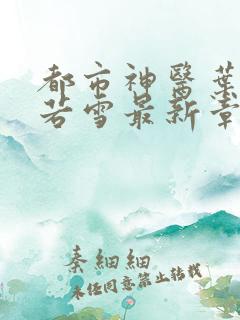 都市神醫葉
若雪最新章
秦細細
未經同意禁止轉載